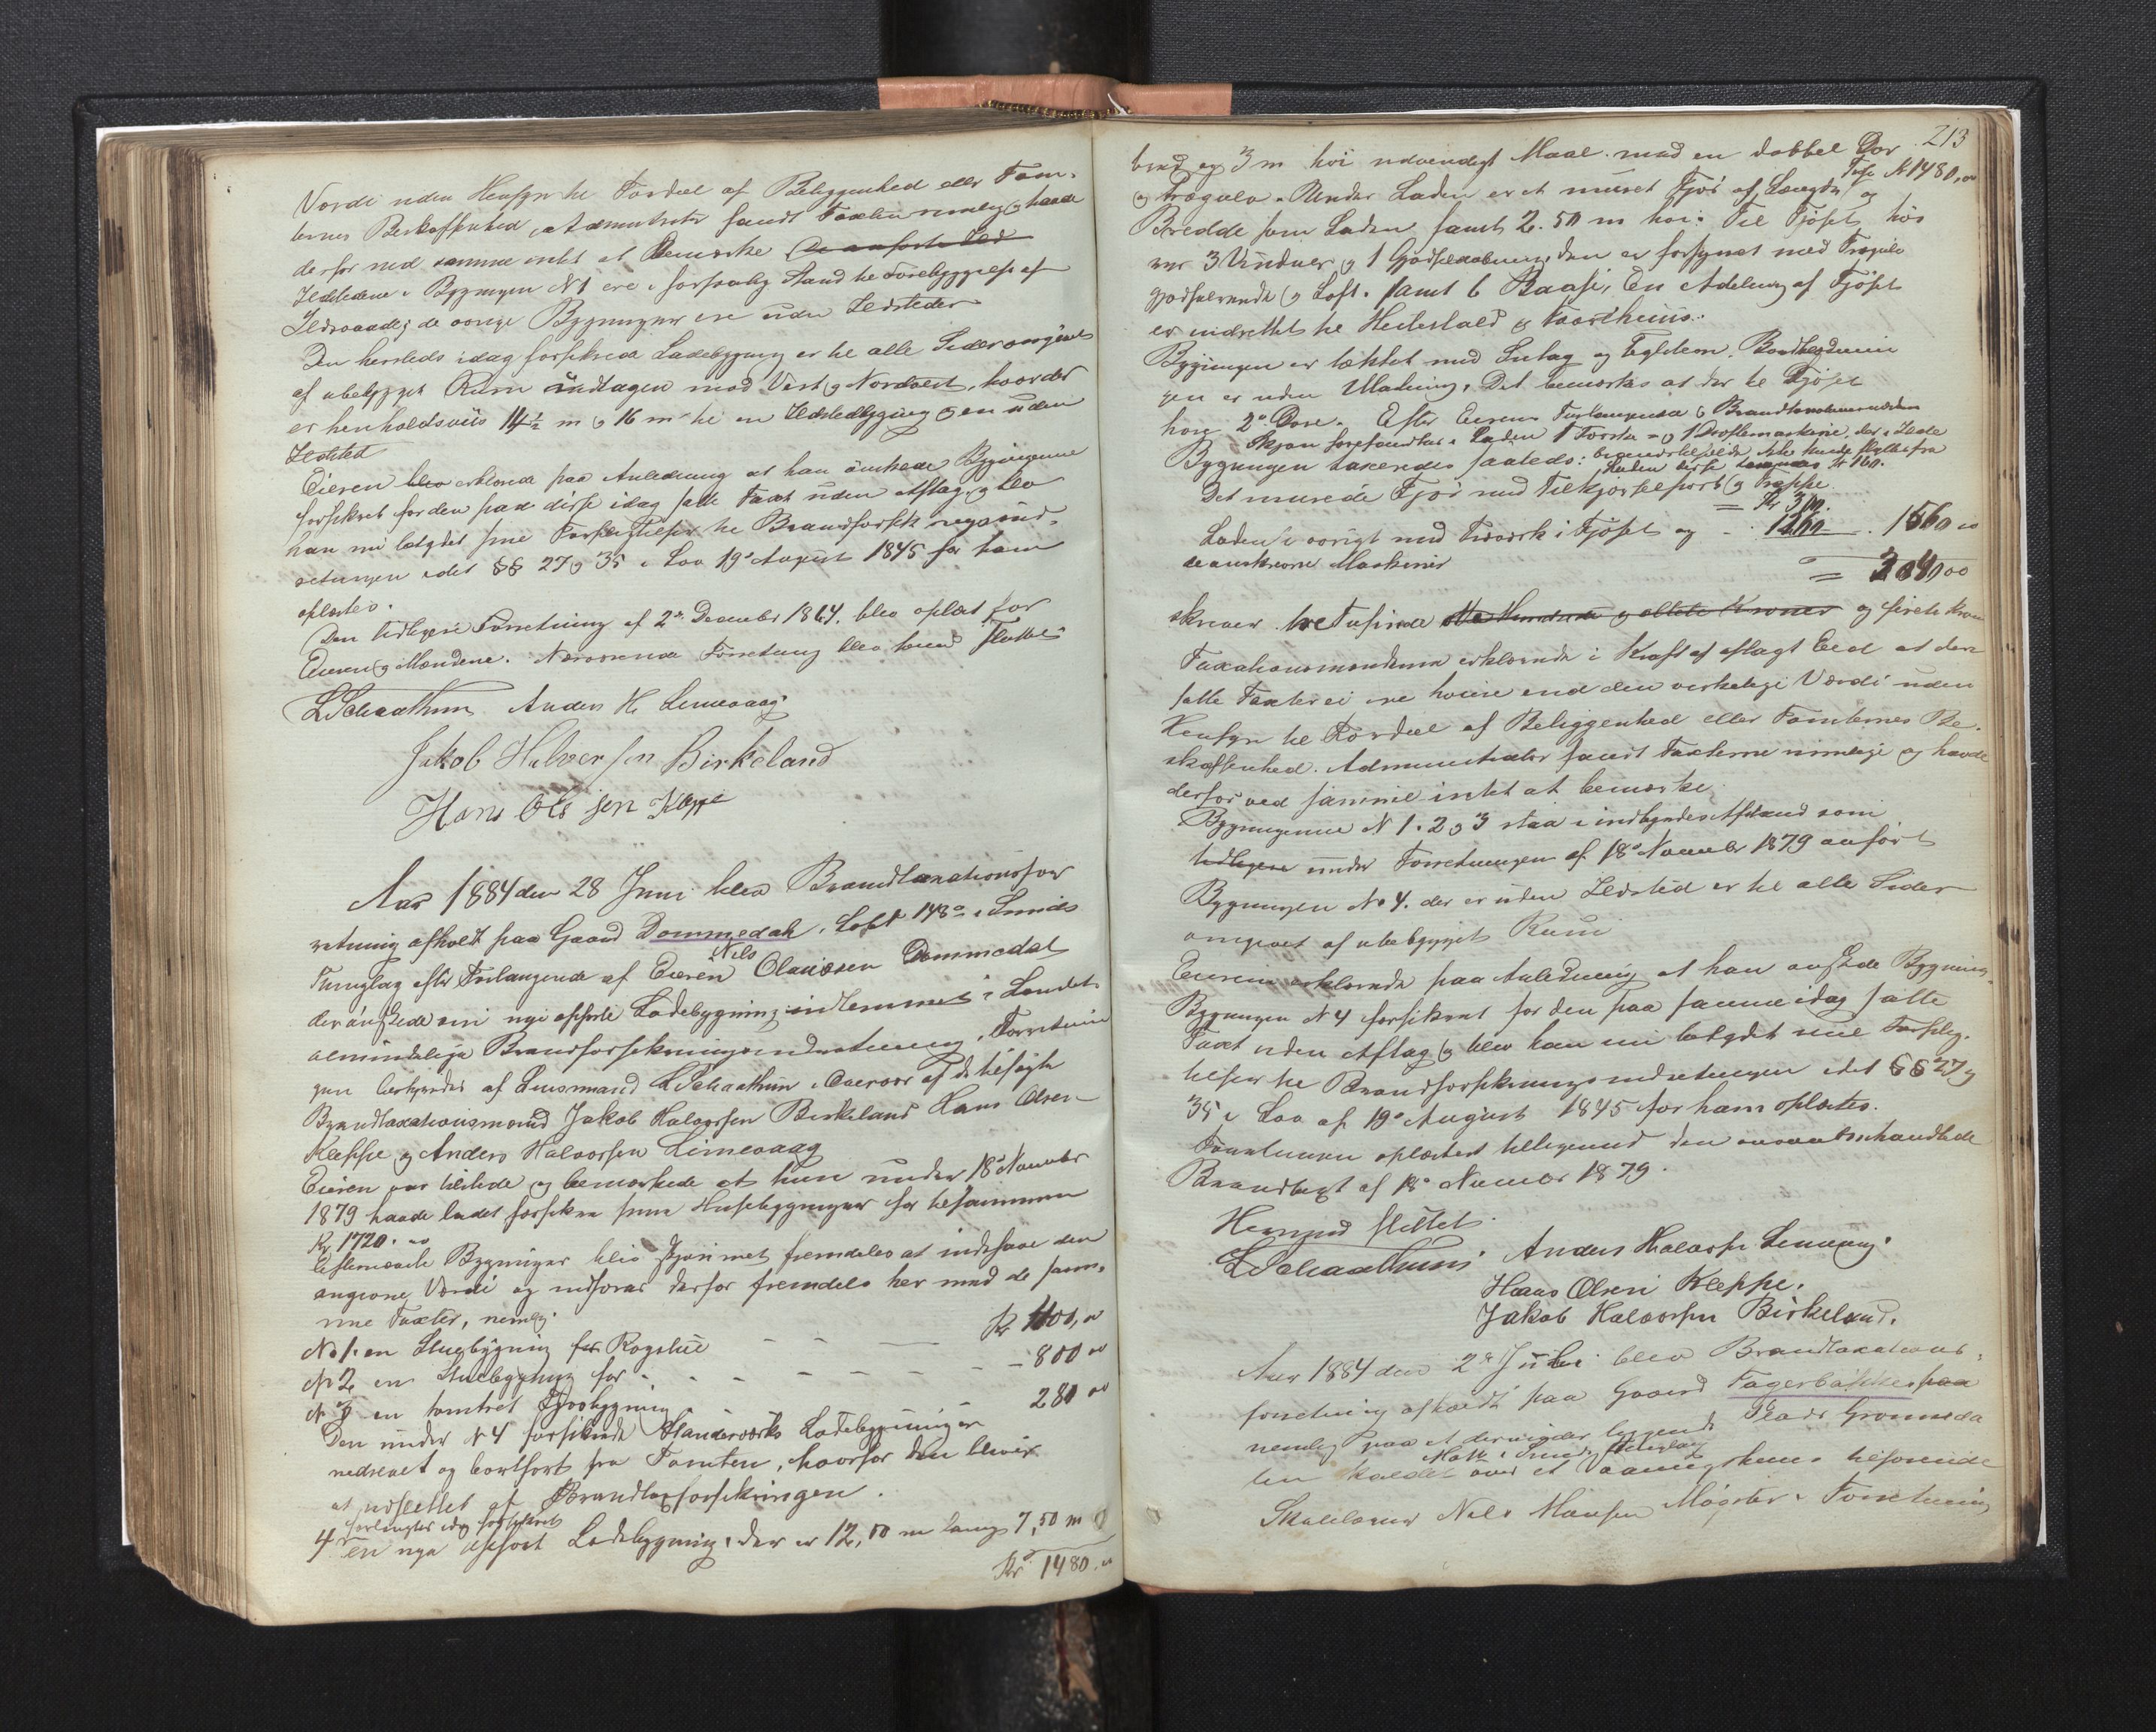 Værdi uden Hensyn til Fordeel af Beliggenhed eller Tom-
ternes Beskaffenhed. Administrator fandt Taxten rimelig og havde
derfor ved samme intet at bemærke
Ildstederne i Bygningen N 1 ere i forsvarlig Stand til Forebyggelse af
Ildsvaade; de øvrige Bygninger ere uden Ildsteder
Den herteds idag forsikrede Ladebygning er til alle Sider omgivet
af ubebygget Rum undtagen mod Vest og Nordvest, hvor der
er henholdsviis 14½ m og 16 m til en Ildstedbygning og en uden
Ildsted
Eieren blev erklærede paa Anledning at han ønskede Bygningerne
forsikret for den paa disse idag satte Taxt uden Afslag, og blev
han nu betydet sine Forpligtelser til Brandforsikringsind-
retningen idet §§ 27 og 35 i Lov 19de August 1845 for ham
oplæstes.
Den tidligere Forretning af 2den December 1864 blev oplæst for
Eieren og Mændene. Nærværende Forretning blev hermed sluttet
L Schaathun Anders H. Limevaag
Jakob Halversen Birkeland
Hans Olsen Kleppe
Aar 1884 den 28 Juni blev Brandtaxationsfor
retning afholdt paa Gaard Dommedal, Løbe N 148 a i Sunds
Nils
Thinglag efter Forlangende af Eieren Olaussen Dommedal
der ønskede sin nye opførte Ladebygning indlemmet i Landets
almindelige Brandforsikringsindretning. Forretnin
gen bestyredes af Lensmand L Schaathun i Overvær af de tilsagte
Brandtaxationsmænd Jakob Halvorsen Birkeland Hans Olsen
Kleppe og Anders Halvorsen Limevaag
Eieren var tilstede og bemærkede at han under 18de November
1879 havde ladet forsikre sine Husebygninger for tilsammen
Kr 1720.00
Eftermeldte Bygninger blev skjønnet fremdeles at indehave den
angivne Værdi og udføres derfor fremdeles her med de sam-
me Taxter, nemlig
No 1. en Stuebygning Røgstue Kr 400,00
N 2 en Stuebygning for - 800 00
N 3 en tømret Fjøsbygning 280 00
Den under N 4 forsikrede Standerværks Ladebygning er
nedrevet og bortført fra Tomten, hvorfor den bliver
at udslettet af Brandforsikringen.
forlangtes idag forsikret
4 en nye opført Ladebygning, der er 12,50 m lang 7,50 m
Kr 1480.00
213
bred og 3 m høi udvendigt Maal med en dobbel Dør
Trsp Kr 1480,00
og Trægulv. Under Laden er et muret Fjøs af Længde og
Bredde som Laden samt 2.50 m høi. Til Fjøset hør
er 3 Vinduer og 1 Gjødselaabning, den er forsynet med Trægulv
gjødselrende og Loft. samt 6 Baase, En Afdeling af Fjøset
er indrettet til Hestestald og Faarehuus.
Bygningen er tækket med Sutag og Teglsten. Bordklædnin
gen er uden Maling. Det bemærkes at der til Fjøset
hør 2de Døre. Efter Eierens Forlangende og Brandtaxationsmændenes
Skjøn forefandtes i Laden 1 Tærske- og 1 Drøftemaskine, der i Ilde
Bygningen taxeredes saaledes: brandstilfælde ikke kunde flyttes fra
Laden disse taxeredes Kr 160.
Det murede Fjøs med Tilkjørselport og Trappe
Kr 300.
Laden i øvrigt med Træværk i Fjøset og 1260 1560 00
de anskrevne Maskiner
= 3040 00
skriver tre Tusinde og otteti Kroner og firti Kron
Taxationsmændene erklærede i Kraft af aflagt Eed at den
satte Taxter ei ere høiere end den virkelige Værdi uden
Hensyn til Fordeel af Beliggenhed eller Tomternes Be-
skaffenhed. Administrator fandt Taxterne rimelige og havde
derfor ved samme intet at bemærke
Bygningerne N 1. 2 og 3 staa i indbyrdes Afstand som
tidligere under Forretningen af 18de November 1879 anført
Bygningen No 4. der er uden Ildsted er til alle Sider
omgivet af ubebygget Rum
Eieren erklærede paa Anledning at han ønskede Bygning
Bygningen N 4 forsikret for den paa samme idag satte
Taxt uden Afslag og blev han nu betydet sine Forplig-
telser til Brandforsikringsindretningen idet §§ 27 og
35 i Lov af 19de August 1845 for ham oplæstes.
Forretningen oplæstes tilligemed den ovenanførte
Brandtaxt af 18de November 1879.
Hermed sluttet.
L Schaathun Anders Halvorsen Limevaag
Hans Olsen Kleppe.
Jakob Halvorsen Birkeland.
Aar 1884 den 2den Juli blev Brandtaxations-
forretning afholdt paa Gaard Fagerbakke paa
nemlig paa et derunder liggende Plads Grønneda
len kaldet over et Vaaningshuus tilhørende
Skolelærer Nils Monsen Møgster. Forretning